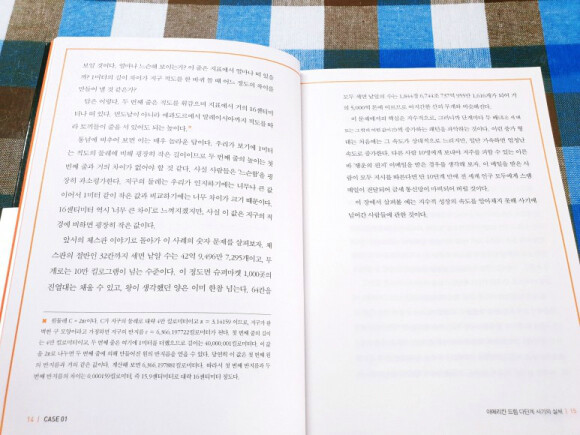 보일 것이다. 얼마나 느슨해 보이는가? 이 줄은 지표에서 얼마나 떠 있을
까? 1미터의 길이 차이가 지구 적도를 한 바퀴 돌 때 어느 정도의 차이를
만들어 낼 것 같은가?
답은 이렇다. 두 번째 줄은 지구를 휘감으며 지표에서 거의 16센티미
터나 떠 있다. 반도남단 아니라 에콰도르에서 말레이시아까지 적도를 따
라 토끼들이 줄을 넘
동남에 비추어 보면 이는 매우 놀라운 답이다. 우리가 보기에 1미터
는 적도의 둘레에 비해 굉장히 작은 길이이므로 두 번째 줄의 높이는 첫
번째 줄과 거의 차이가 없어야 할 것 같다. 사실 사람들은 '느슨함'을 굉
장히 과소평가한다. 지구의 둘레는 우리가 인지하기에는 너무나 큰 값
이어서 1미터 같이 작은 값과 비교하기에는 너무 차이가 크기 때문이다.
16센티미터 역시 너무 큰 차이로 느껴지겠지만, 사실 이 값은 지구의 직
경에 비하면 굉장히 작은 값이다.
앞서의 체스판 이야기로 돌아가 이 사례의 숫자 문제를 살펴보자. 체
스판의 절반인 32칸까지 세면 낱알 수는 42억 9,496만 7,295개이고, 무
게로는 10만 킬로그램이 넘는 수준이다. 이 정도면 슈퍼마켓 1,000곳의
진열대는 채울 수 있고, 왕이 생각했던 양은 이미 한참 넘는다. 64칸을
■ 원둘레 C = 2πr이다. C가 지구의 둘레로 대략 4만 킬로미터이고 π = 3.14159 이므로, 지구가 완
벽한 구 모양이라고 가정하면 지구의 반지름 r = 6,366.197722킬로미터가 된다. 첫 번째 줄의 길이
는 4만 킬로미터이고, 두 번째 줄은 여기에 1미터를 더했으므로 길이는 40,000.001킬로미터다. 이 값
을 2π로 나누면 두 번째 줄에 의해 만들어진 원의 반지름을 얻을 수 있다. 당연히 이 값은 첫 번째 원
의 반지름과 거의 같은 값이다. 계산해 보면 6,366.197881킬로미터다. 따라서 첫 번째 반지름과 두
번째 반지름의 차이는 0.000159킬로미터, 즉 15.9센티미터로 대략 16센티미터 정도다.
14 | CASE 01
모두 세면 낱알의 수는 1,844경 6,744조 737억 955만 1,616개가 되며 거
의 5,000억 톤에 이르므로 어지간한 산의 무게와 비슷해진다.
이 문제에서의 핵심은 지수적으로,
형태는 처음에는 그 속도가 상대적으로 느리지만, 일단 가속하면 엄청난
속도로 증가한다. 다른 사람 10명에게
사람이 모두 지시를 따른다면 단 10단계 만에 전 세계 인구 모두에게 스팸
메일이 전달되며 금세 통신망이 마비되어 버릴 것이다.
이 장에서 살펴볼 예는 지수적 성장의 속도를 알아채지 못해 사기에
넘어간 사람들에 관한 것이다.
아메리칸 드림 다단계 사기의 실체 | 15